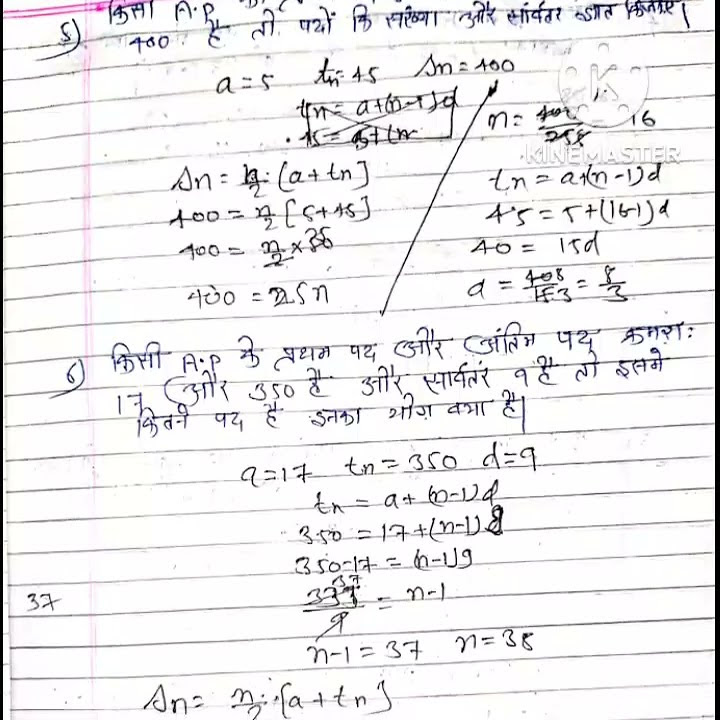 5) किसी A.P
400 है तो पदों कि संख्या और सार्वतर ज्ञात किजिए।
a = 5 tn = 45 Sn = 400
tn = a+(n-1)d
45 = 5+(n
n = 400/25 16
KINEMASTER
Sn = n/2 [a+tn]
400 = n/2 [5+45]
400 = n/2 ×
400 = 25n
tn = a+(n-1)d
45 = 5+(16-1)d
40 = 15d
a = 40/15 3 = 8/3
6) किसी A.P के प्रथम पद और अंतिम पद क्रमश:
17 और 350 है और सार्वतंर 9 है तो इसमे
कितने पद है इनका योग क्या है|
a=17 tn=350 d=9
tn = a+(n-1)d
350 = 17+(n-1)9
350-17 = (n-1)9
37
333/9 = n-1
37
n-1 = 37 n = 38
Sn = n/2 [a+tn]